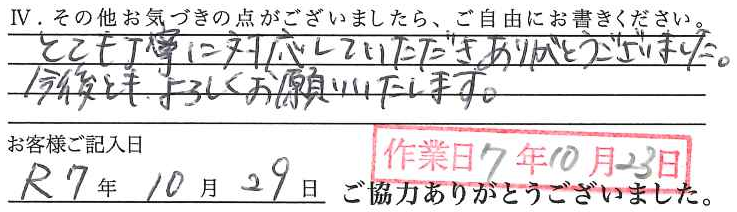 Ⅳ．その他お気づきの点がございましたら、ご自由にお書きください。
とても丁寧に対応していただきありがとうございました。
今後とも よろしくお願いいたします。
お客様ご記入日
作業日 7 年 10 月 23 日
R7 年 10 月 29 日 ご協力ありがとうございました。